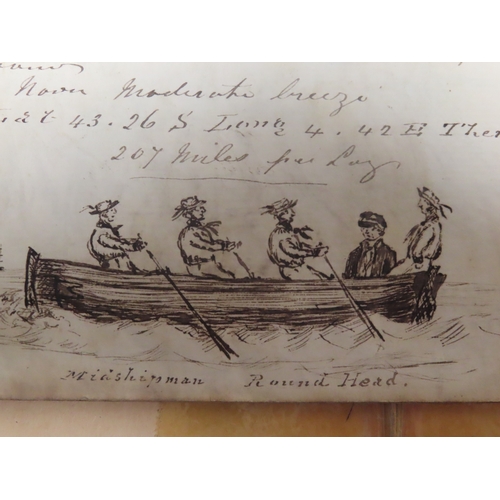 Noon Moderate breeze
Lat 43.26 S Long 4.42 E Ther
207 Miles per Log
Midshipman Round Head.